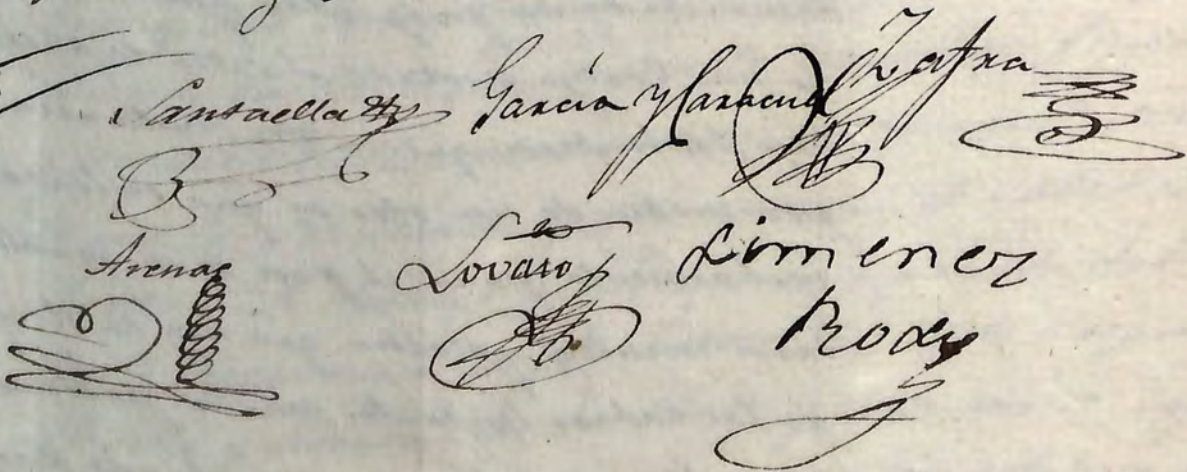 Santaella García y Caracuel Zafra
Arenas Lovato Ximenez
Rodz